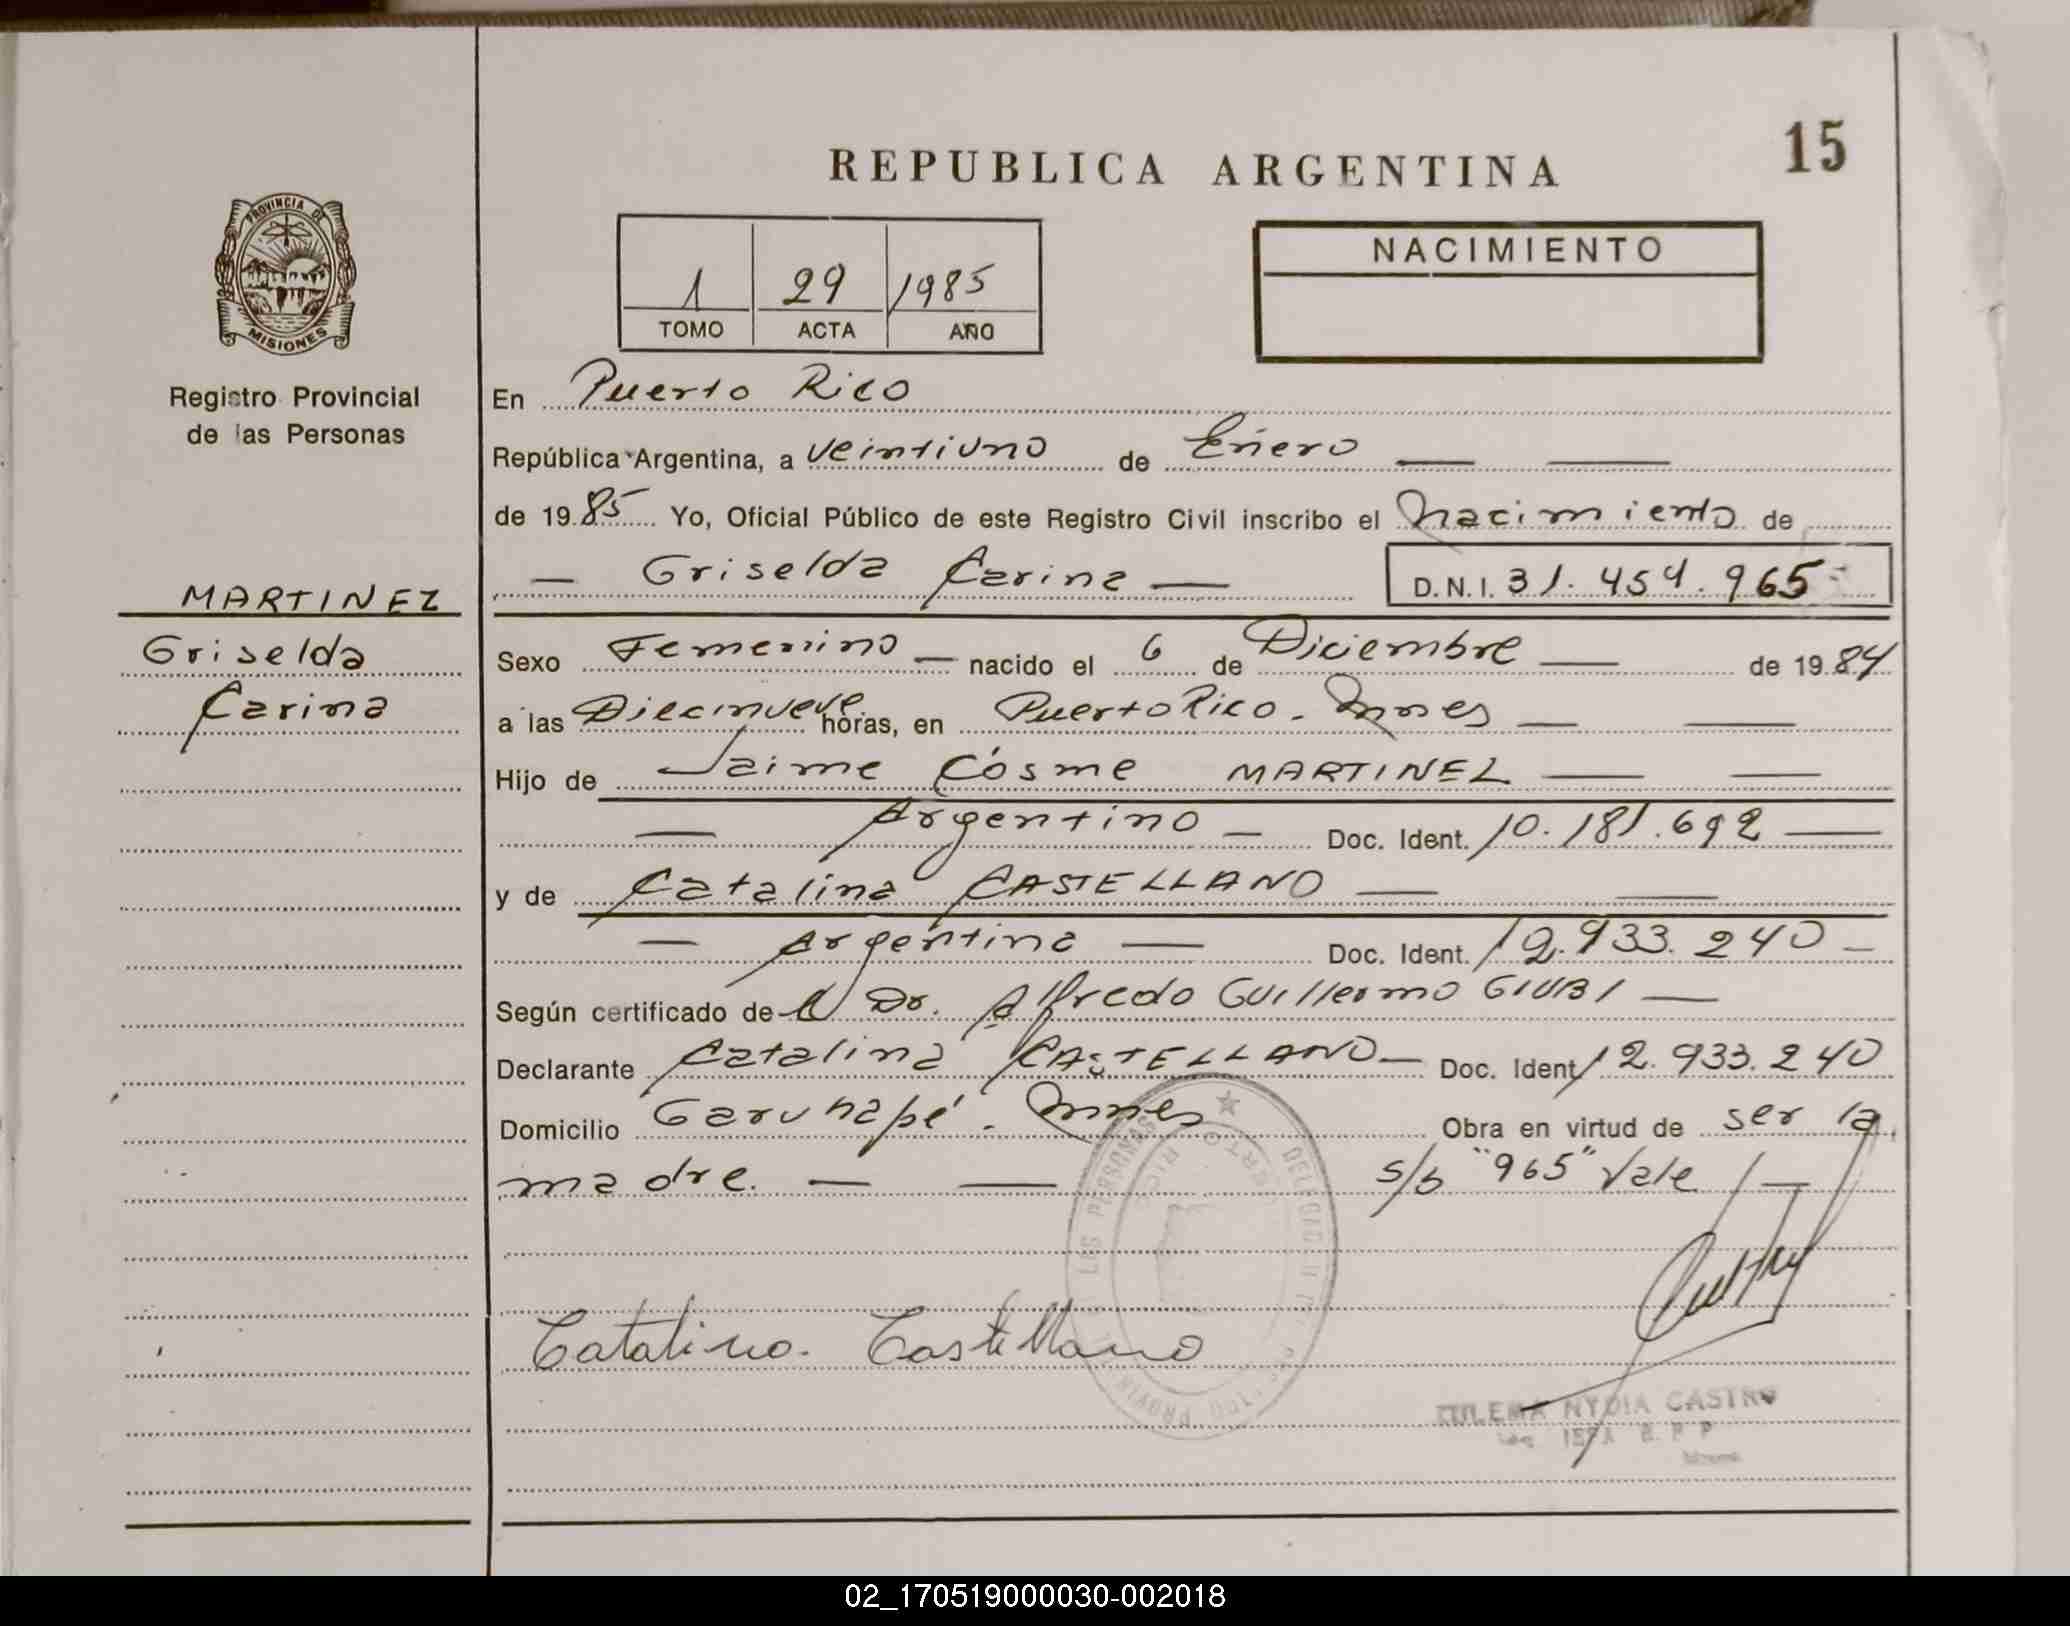 REPUBLICA ARGENTINA
15
PROVINCIA DE
MISIONES
Registro Provincial
de las Personas
1 29 1985
TOMO ACTA AÑO
NACIMIENTO
En Puerto Rico
República Argentina, a veintiuno de Enero
de 1985 Yo, Oficial Público de este Registro Civil inscribo el nacimiento de
— Griselda Carina —
D.N.I. 31.454.965
MARTINEZ
Griselda
Carina
Sexo Femenino — nacido el 6 de Diciembre — de 1984
a las Diecinueve horas, en Puerto Rico. Mnes — —
Hijo de Jaime Cosme MARTINEZ — —
— Argentino — Doc. Ident. 10.181.692 —
y de Catalina CASTELLANO — —
— Argentina — Doc. Ident. 12.933.240 —
Según certificado de l Dr. Alfredo Guillermo GIUBI —
Declarante Catalina CASTELLANO — Doc. Ident 12.933.240
Domicilio Garuhapé. Mnes Obra en virtud de ser la
madre. — — s/b "965" Vale / —
Catalina Castellano
ZULEMA NYDIA CASTRO
02_170519000030-002018